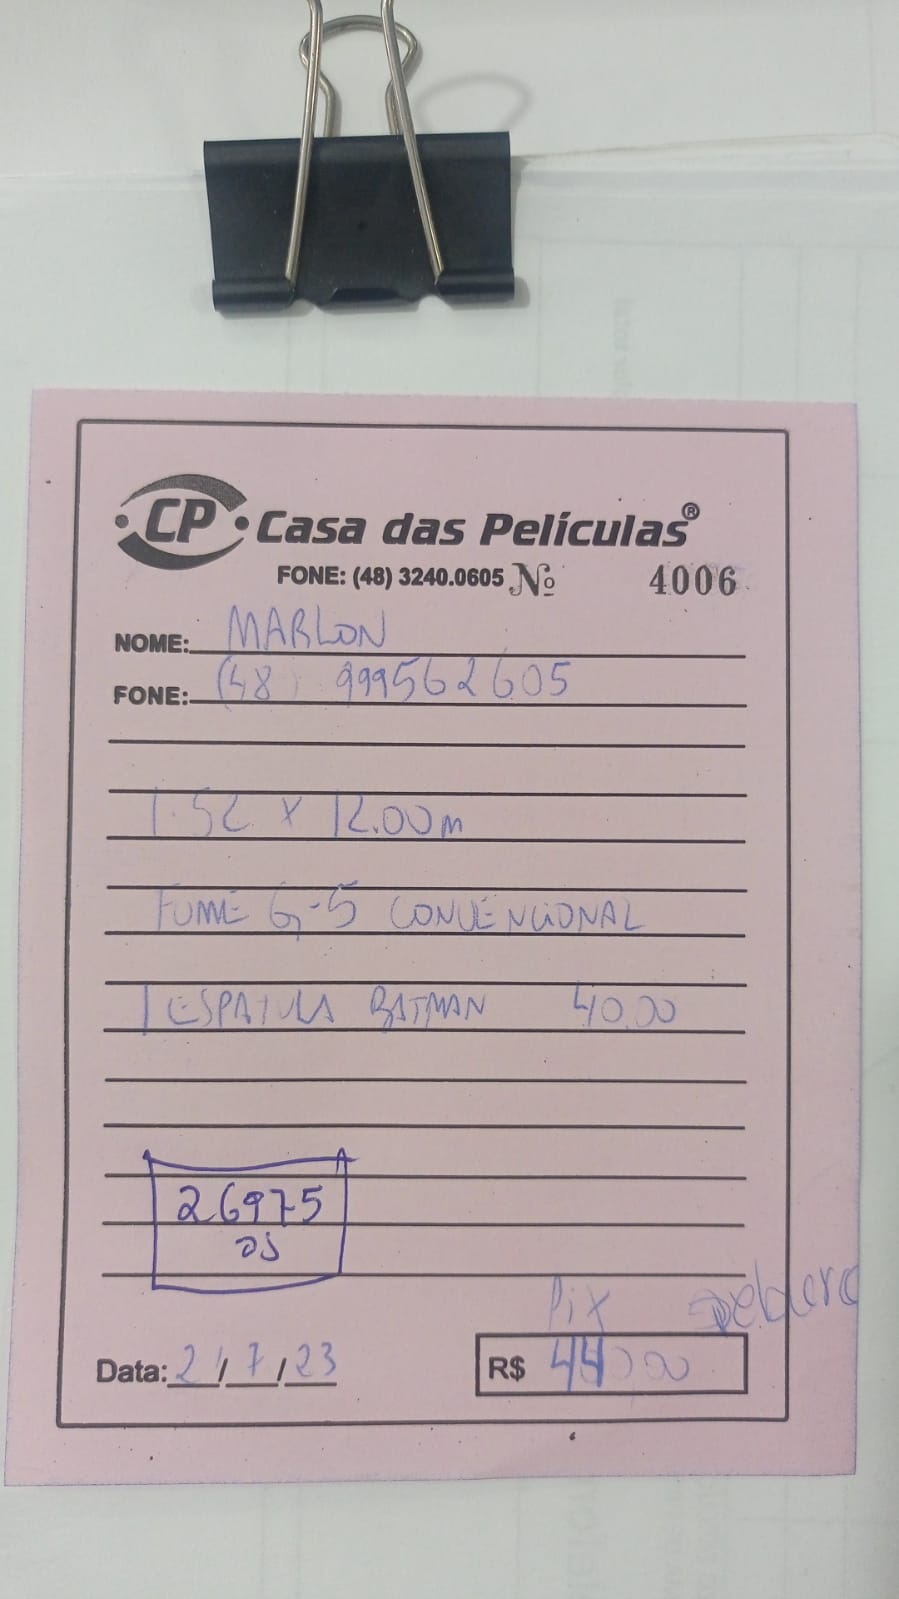 CP Casa das Películas®
FONE: (48) 3240.0605 Nº 4006
NOME: MARLON
FONE: (48) 999562605
1.52 x 12.00m
FUMÊ G-5 CONVENCIONAL
1 ESPATULA BATMAN 40,00
26975
os
Pix
Data: 21/7/23 R$ 440,00